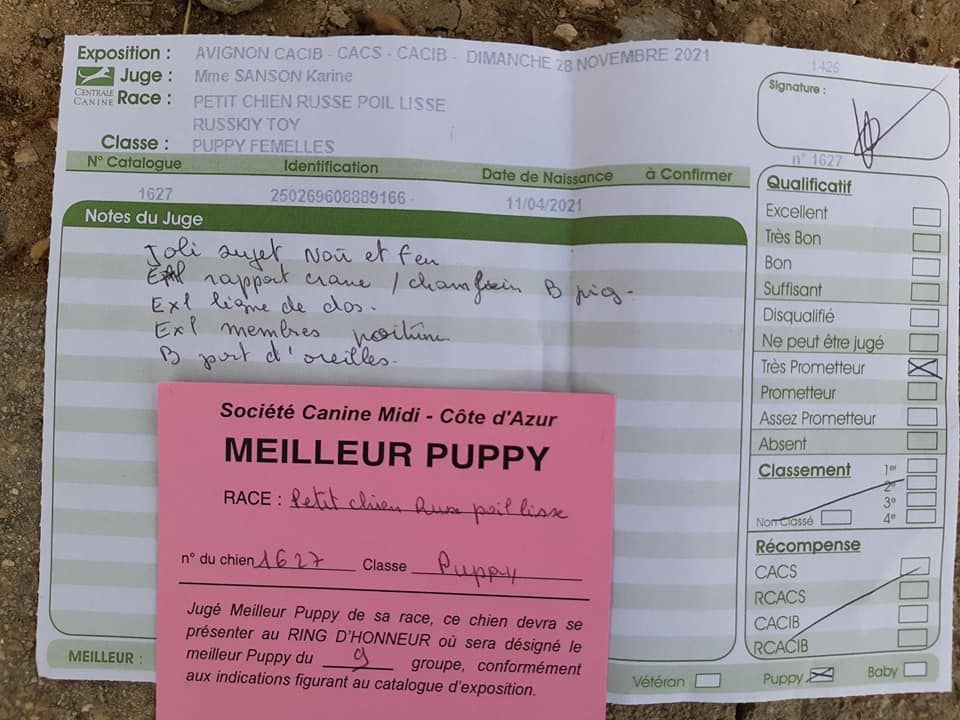 Exposition : AVIGNON CACIB - CACS - CACIB - DIMANCHE 28 NOVEMBRE 2021
CENTRALE CANINE
Juge : Mme SANSON Karine
Race : PETIT CHIEN RUSSE POIL LISSE
RUSSKIY TOY
Classe : PUPPY FEMELLES
1426
Signature :
N° Catalogue Identification Date de Naissance à Confirmer
1627 250269608889166 - 11/04/2021
n° 1627
Notes du Juge
Joli sujet Noir et feu
Exl rapport crane / chanfrein B pig-
Exl ligne de dos.
Exl membres poitrine
B port d'oreilles.
Qualificatif
Excellent
Très Bon
Bon
Suffisant
Disqualifié
Ne peut être jugé
Très Prometteur
Prometteur
Assez Prometteur
Absent
Classement 1er
2e
3e
Non Classé 4e
Récompense
CACS
RCACS
CACIB
RCACIB
MEILLEUR : Vétéran Puppy Baby
Société Canine Midi - Côte d'Azur
MEILLEUR PUPPY
RACE : Petit chien Russe poil lisse
n° du chien 1627 Classe Puppy
Jugé Meilleur Puppy de sa race, ce chien devra se
présenter au RING D'HONNEUR où sera désigné le
meilleur Puppy du 9 groupe, conformément
aux indications figurant au catalogue d'exposition.